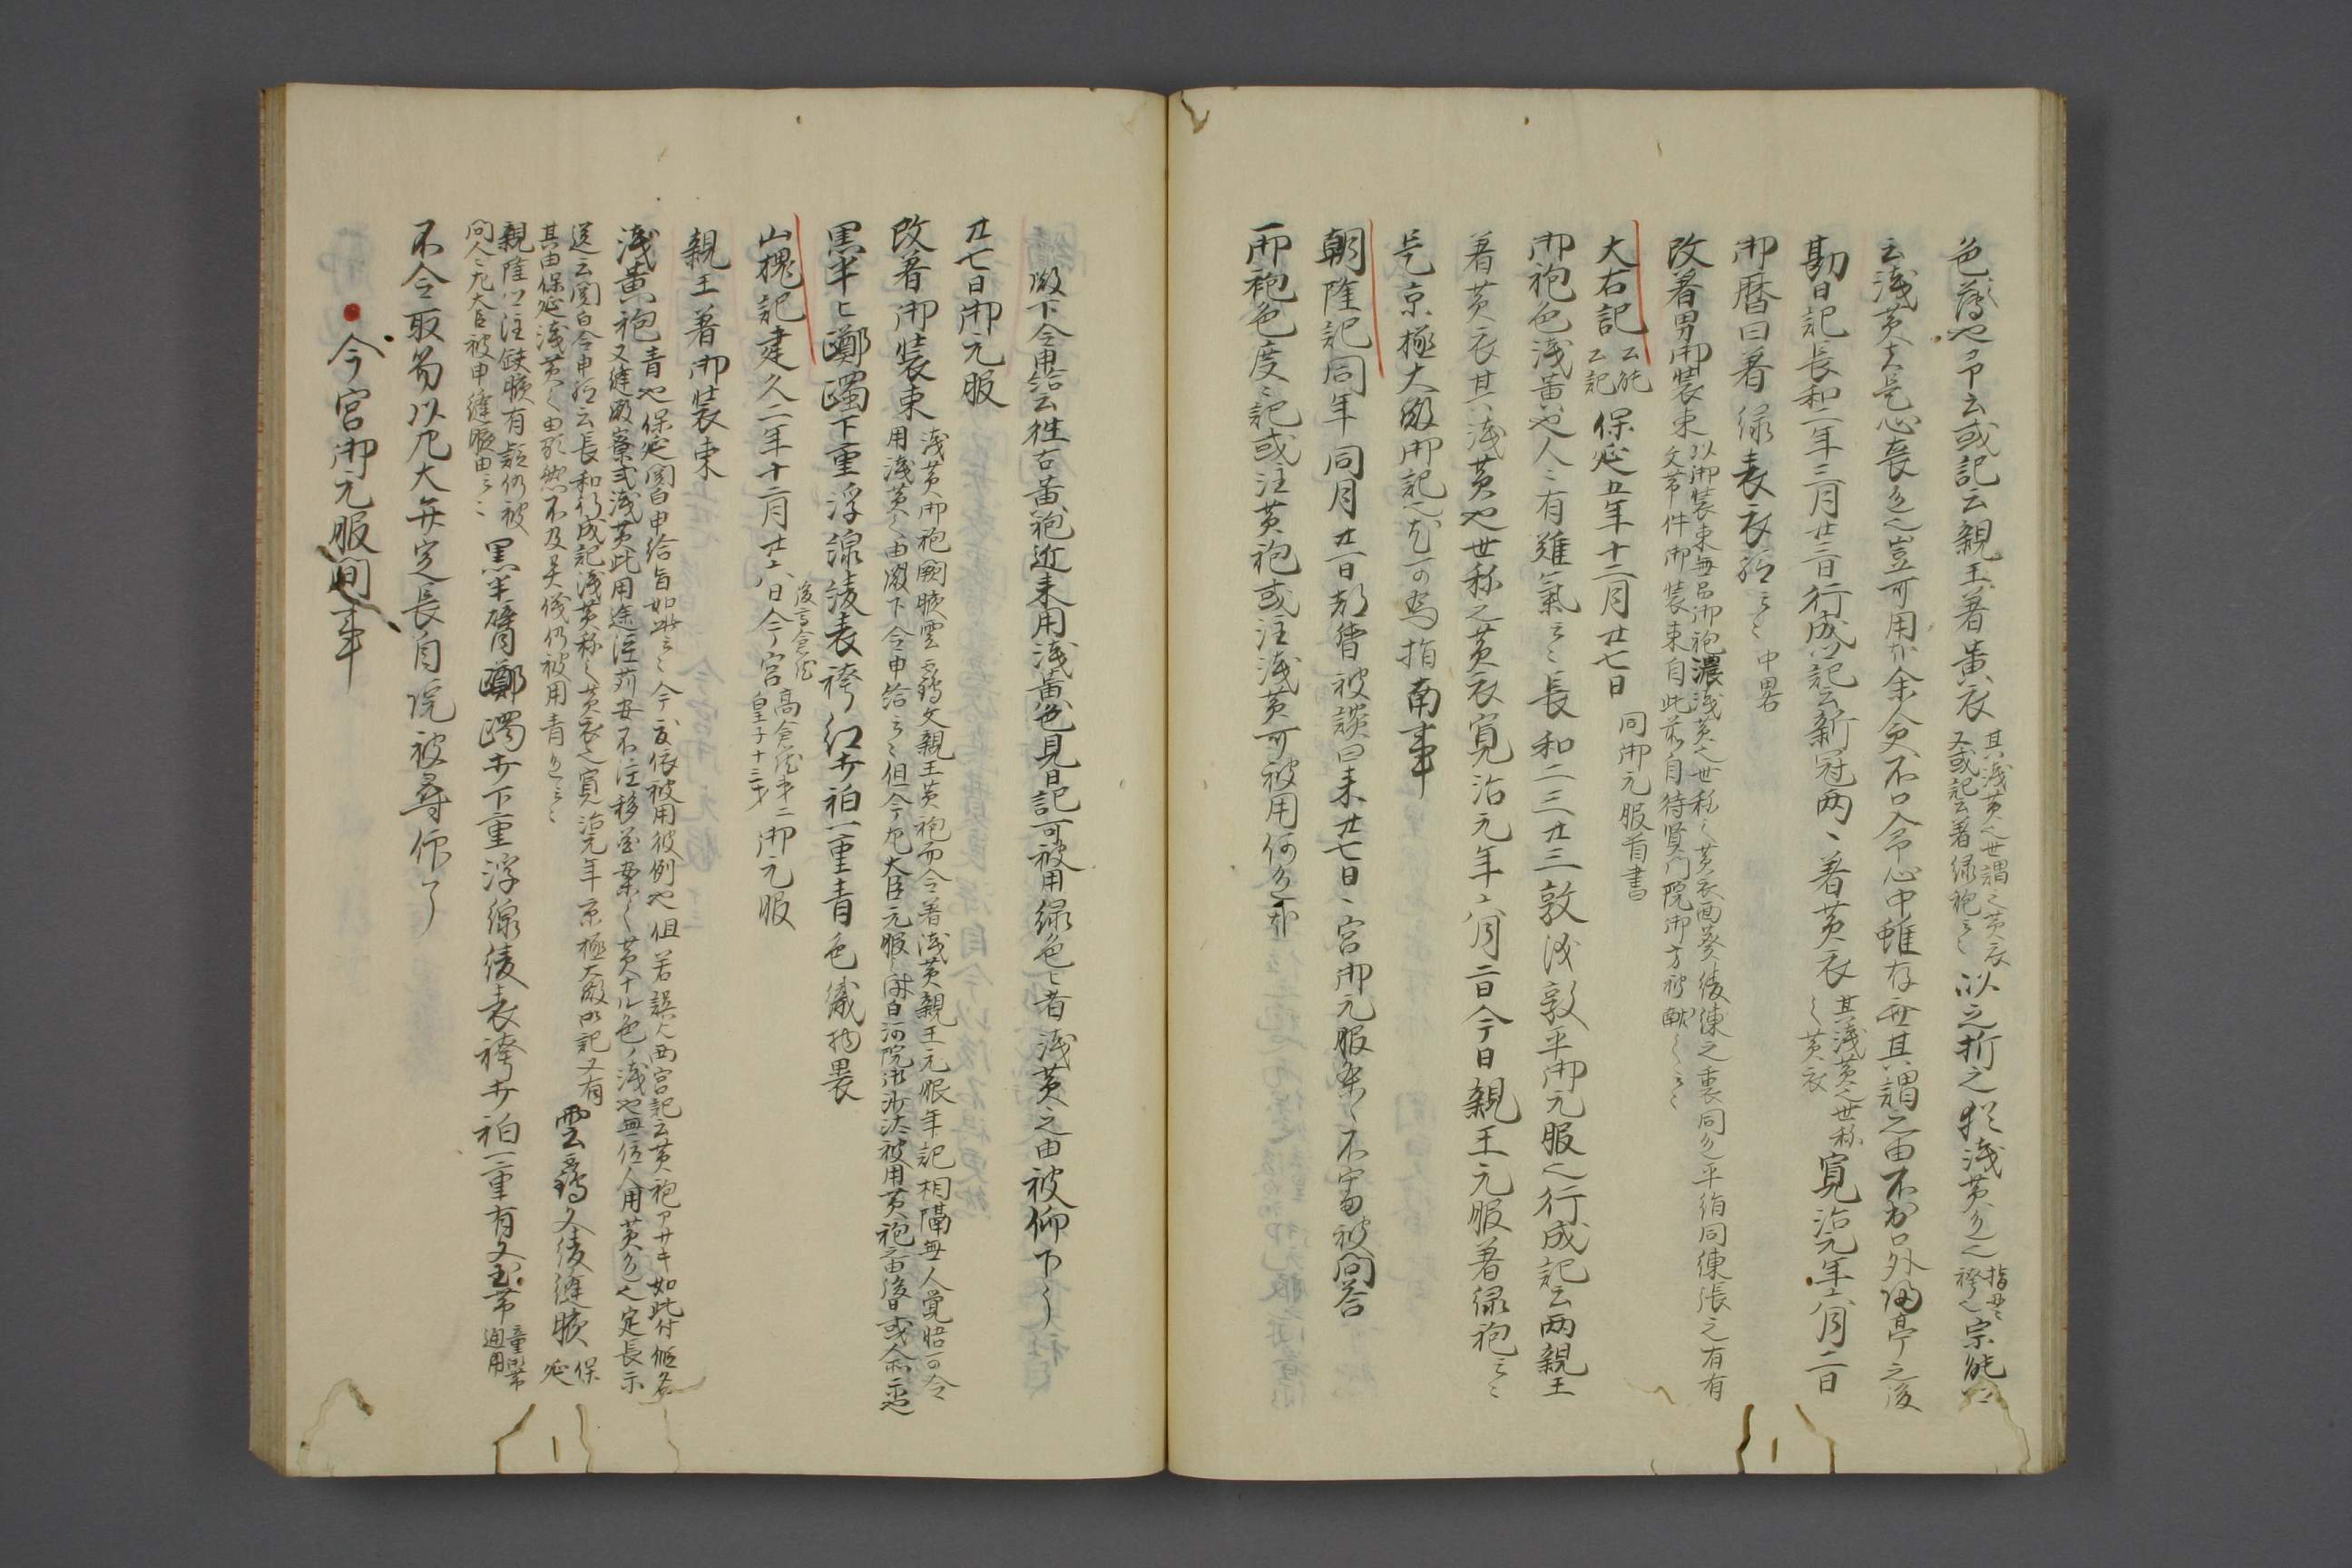 色薄也予云或記云親王着黄衣其浅黄之世謂之黄衣又或記云着緑袍云々以之折之猶浅黄色也
云浅黄者是心喪色也豈可用哉余更不口入心中雖存無其謂之由不出口外帰亭之後
勘日記長和二年三月廿三日行成記云新冠両々着黄衣其浅黄之世称之黄衣寛治元年六月二日
御暦曰着緑表衣給云々
改着男御装束以御装束無品御袍濃浅黄之世称之黄衣面葵綾練之裏同色平絹同練張之有有文帯件御装束自此前自待賢門院御方被献之云々
大右記保延五年十二月廿七日同御元服首書
御袍色浅黄也人々有難気云々長和二三廿三敦儀敦平御元服之行成記云両親王
着黄衣其浅黄也世称之黄衣寛治元年六月二日今日親王元服着緑袍云々
是京極大殿御記也尤可為指南事
朝隆記同年同月廿一日被談曰来廿七日々宮御元服条々不審被問答
一御袍色度々記或注黄袍或注浅黄可被用何色哉
殿下令申給云往古黄袍近来用浅黄色見日記可被用緑色々者浅黄之由被仰下了
廿七日御元服
改着御装束浅黄御袍闕腋雲鶴文親王黄袍而令着浅黄親王元服年記相隔無人覚悟可令用浅黄之由殿下令申給云々但今左大臣元服之時白河院御沙汰被用黄袍之由後日或人所示也
黒半臂躑躅下重浮線綾表袴紅打衵一重青色織物畏
山槐記建久二年十二月廿六日今宮高倉院第二皇子十三才御元服
親王着御装束
浅黄袍青也保延関白申給旨如此云々今度依被用彼例也但若誤人西宮記云黄袍アサキ如此付假名又縫殿寮式浅黄此用途注苅安不注移花案之黄ナル色ノ浅也無位人用黄色之定長示
送云関白令申給云長和行成記浅黄称之黄衣之寛治元年京極大殿御記又有其由保延浅黄之由雖然不及異儀仍被用青色云々雲鶴文綾縫腋保延
親隆卿注闕腋有疑仍被問人々左大臣被申縫腋由云々黒半臂躑躅打下重浮線綾表袴打衵一重有文玉帯童帯通用
不令取笏以左大弁定長自院被尋仰了
今宮御元服間事